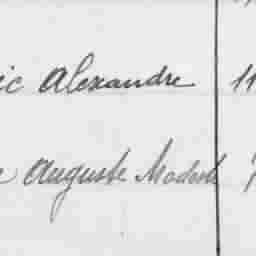 ic Alexandre 11
e Auguste Modeste